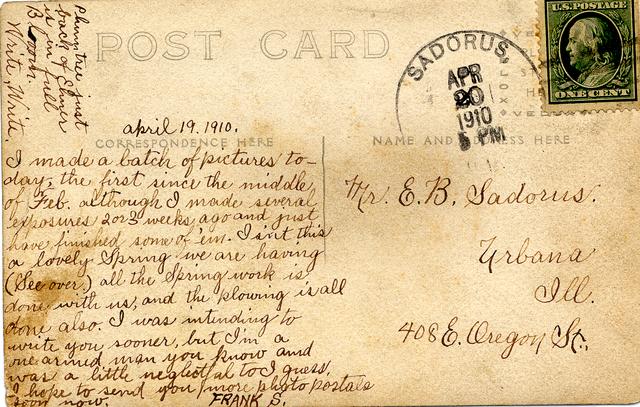 Plum tree just
back of Elmer
is in full
Bloom
Write, Write.
POST CARD
SADORUS,
APR
20
1910
5 PM
U.S. POSTAGE
ONE CENT
april 19. 1910.
CORRESPONDENCE HERE
NAME AND ADDRESS HERE
I made a batch of pictures to-
day, the first since the middle
of Feb. although I made several
exposures 2 or 3 weeks ago and just
have finished some of 'em. Isn't this
a lovely Spring we are having
(See over.) all the Spring work is
done with us, and the plowing is all
done also. I was intending to
write you sooner, but I'm a
one armed man you know and
was a little neglectful to I guess.
I hope to send you more photo postals
soon now.
FRANK S.
Mr. E. B. Sadorus.
Urbana
Ill.
408 E. Oregon St.